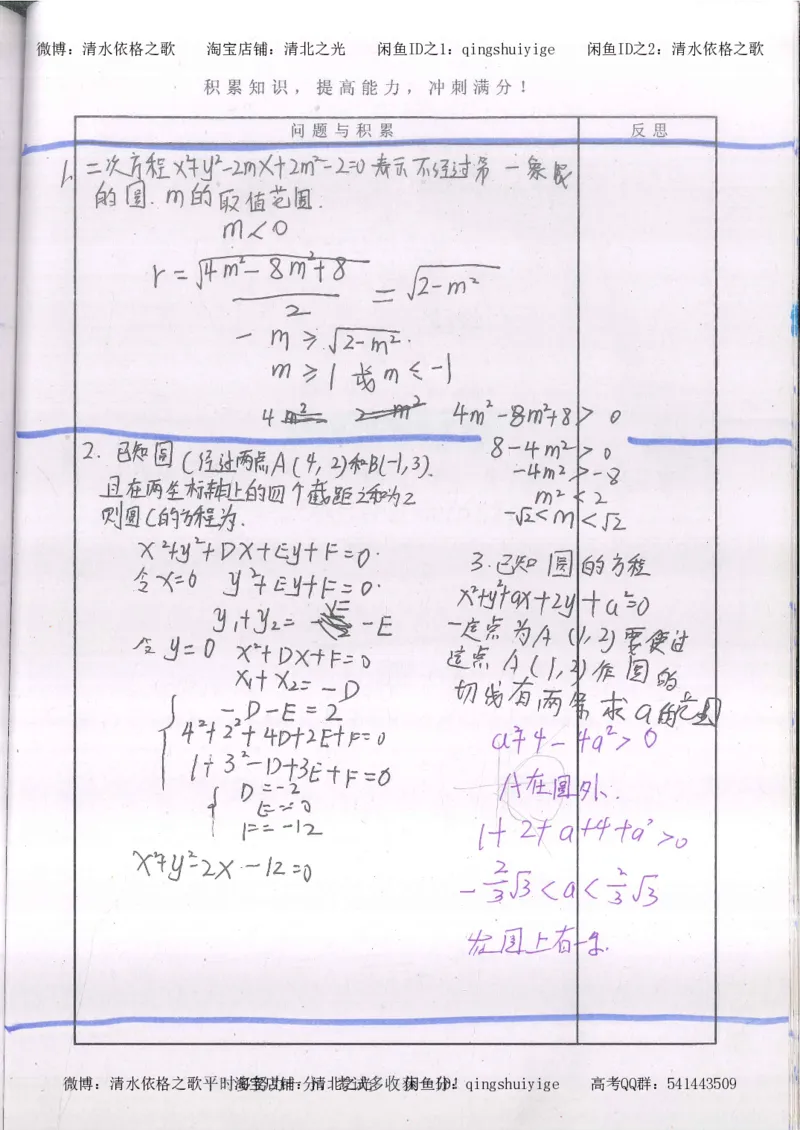 微博：清水依格之歌 淘宝店铺：清北之光 闲鱼ID之1：qingshuiyige 闲鱼ID之2：清水依格之歌
积累知识，提高能力，冲刺满分！
问题与积累 反思
1. 二次方程x²+y²-2mx+2m²-2=0表示不经过第一象限
的圆.m的取值范围.
m<0
r=√4m²-8m²+8/2 =√2-m²
-m≥√2-m².
m≥1或m≤-1
4m²-8m²+8>0
8-4m²>0
-4m²>-8
m²<2
-√2<m<√2
2. 已知圆C经过两点A(4,2)和B(-1,3).
且在两坐标轴上的四个截距之和为2
则圆C的方程为.
x²+y²+Dx+Ey+F=0.
令x=0 y²+Ey+F=0.
y₁+y₂= -E
令y=0 x²+Dx+F=0
x₁+x₂=-D
-D-E=2
4²+2²+4D+2E+F=0
1+3²-D+3E+F=0
D=-2
E=0
F=-12
x²+y²-2x-12=0
3.已知圆的方程
x²+y²+ax+2y+a²=0
一定点为A(1,2)要使过
定点A(1,2)作圆的
切线有两条求a的范围
a²+4-4a²>0
A在圆外
1+2+a+4+a²>0
-2/3√3<a<2/3√3
在圆上有一条.
微博：清水依格之歌 淘宝店铺：清北之光 闲鱼ID：qingshuiyige 高考QQ群：541443509